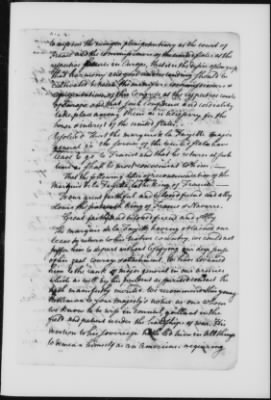 to inform the minister plenipotentiary at the court of
France and the commissioners of the united states at the
respective courts in Europe, that it is the desire of Congress
that harmony and good understanding should be
cultivated between the ministers commissioners &
representatives of this Congress at the respective courts
of Europe and that such confidence and cordiality
take place among them as is necessary for the
honor & interest of the united states.
Resolved That the marquis de la Fayette major
general in the service of the united states have
leave to go to France and that he return at such
time, that is most convenient to him
That the following letter of recommendation of the
Marquis de la Fayette, to the King of France
To our great faithful and beloved friend and ally
Lewis the sixteenth King of France & Navarre.
Great faithful and beloved friend and Ally
The marquis de la Fayette having obtained our
leave to return to his native country, we could not
suffer him to depart without testifying our deep sense
of his zeal courage & attachment. We have advanced
him to the rank of major general in our armies
which as well by his prudent as spirited conduct he
hath manifestly merited. We recommend this young
nobleman to your majesty's notice as one whom
we know to be wise in council, gallant in the
field and patient under the hardships of war. His
devotion to his sovereign hath led him in all things
to demean himself as an American, acquiring